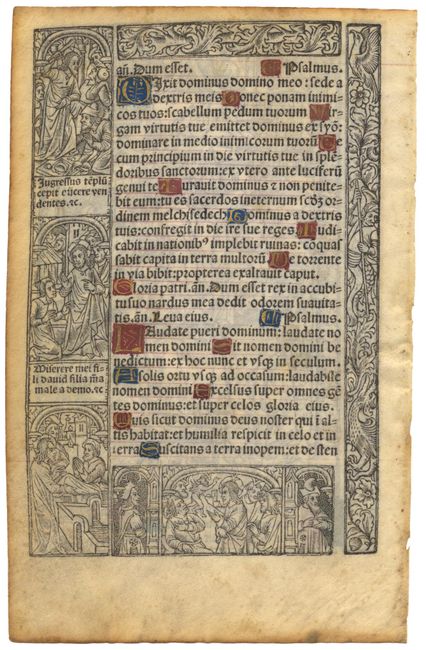 añ. Dum esset. Psalmus.
Dixit dominus domino meo: sede a
dextris meis Donec ponam inimi-
cos tuos: scabellum pedum tuorum Vir-
gam virtutis tue emittet dominus ex syõ:
dominare in medio inimicorum tuorũ Te
cum principium in die virtutis tue in splẽ
doribus sanctorum: ex vtero ante luciferũ
genui te Iurauit dominus & non penite-
bit eum: tu es sacerdos ineternum scd̃z or-
dinem melchisedech Dominus a dextris
tuis: confregit in die ire sue reges. Iudi-
cabit in nationibꝰ implebit ruinas: cõquas
sabit capita in terra multorũ De torrente
in via bibit: propterea exaltauit caput.
Gloria patri. añ. Dum esset rex in accubi-
tu suo nardus mea dedit odorem suauita-
tis. añ. Leua eius. Psalmus.
Laudate pueri dominum: laudate no
men domini Sit nomen domini be
nedictum: ex hoc nunc et vsqz in seculum.
A solis ortu vsqz ad occasum: laudabile
nomen domini Excelsus super omnes gẽ
tes dominus: et super celos gloria eius.
Quis sicut dominus deus noster qui ĩ al-
tis habitat: et humilia respicit in celo et in
terra Suscitans a terra inopem: et de sterc
Ingressus tẽplũ
cepit eiicere ven
dentes. ⁊c.
Miserere mei fi-
li dauid filia m̃a
male a demo. ⁊c